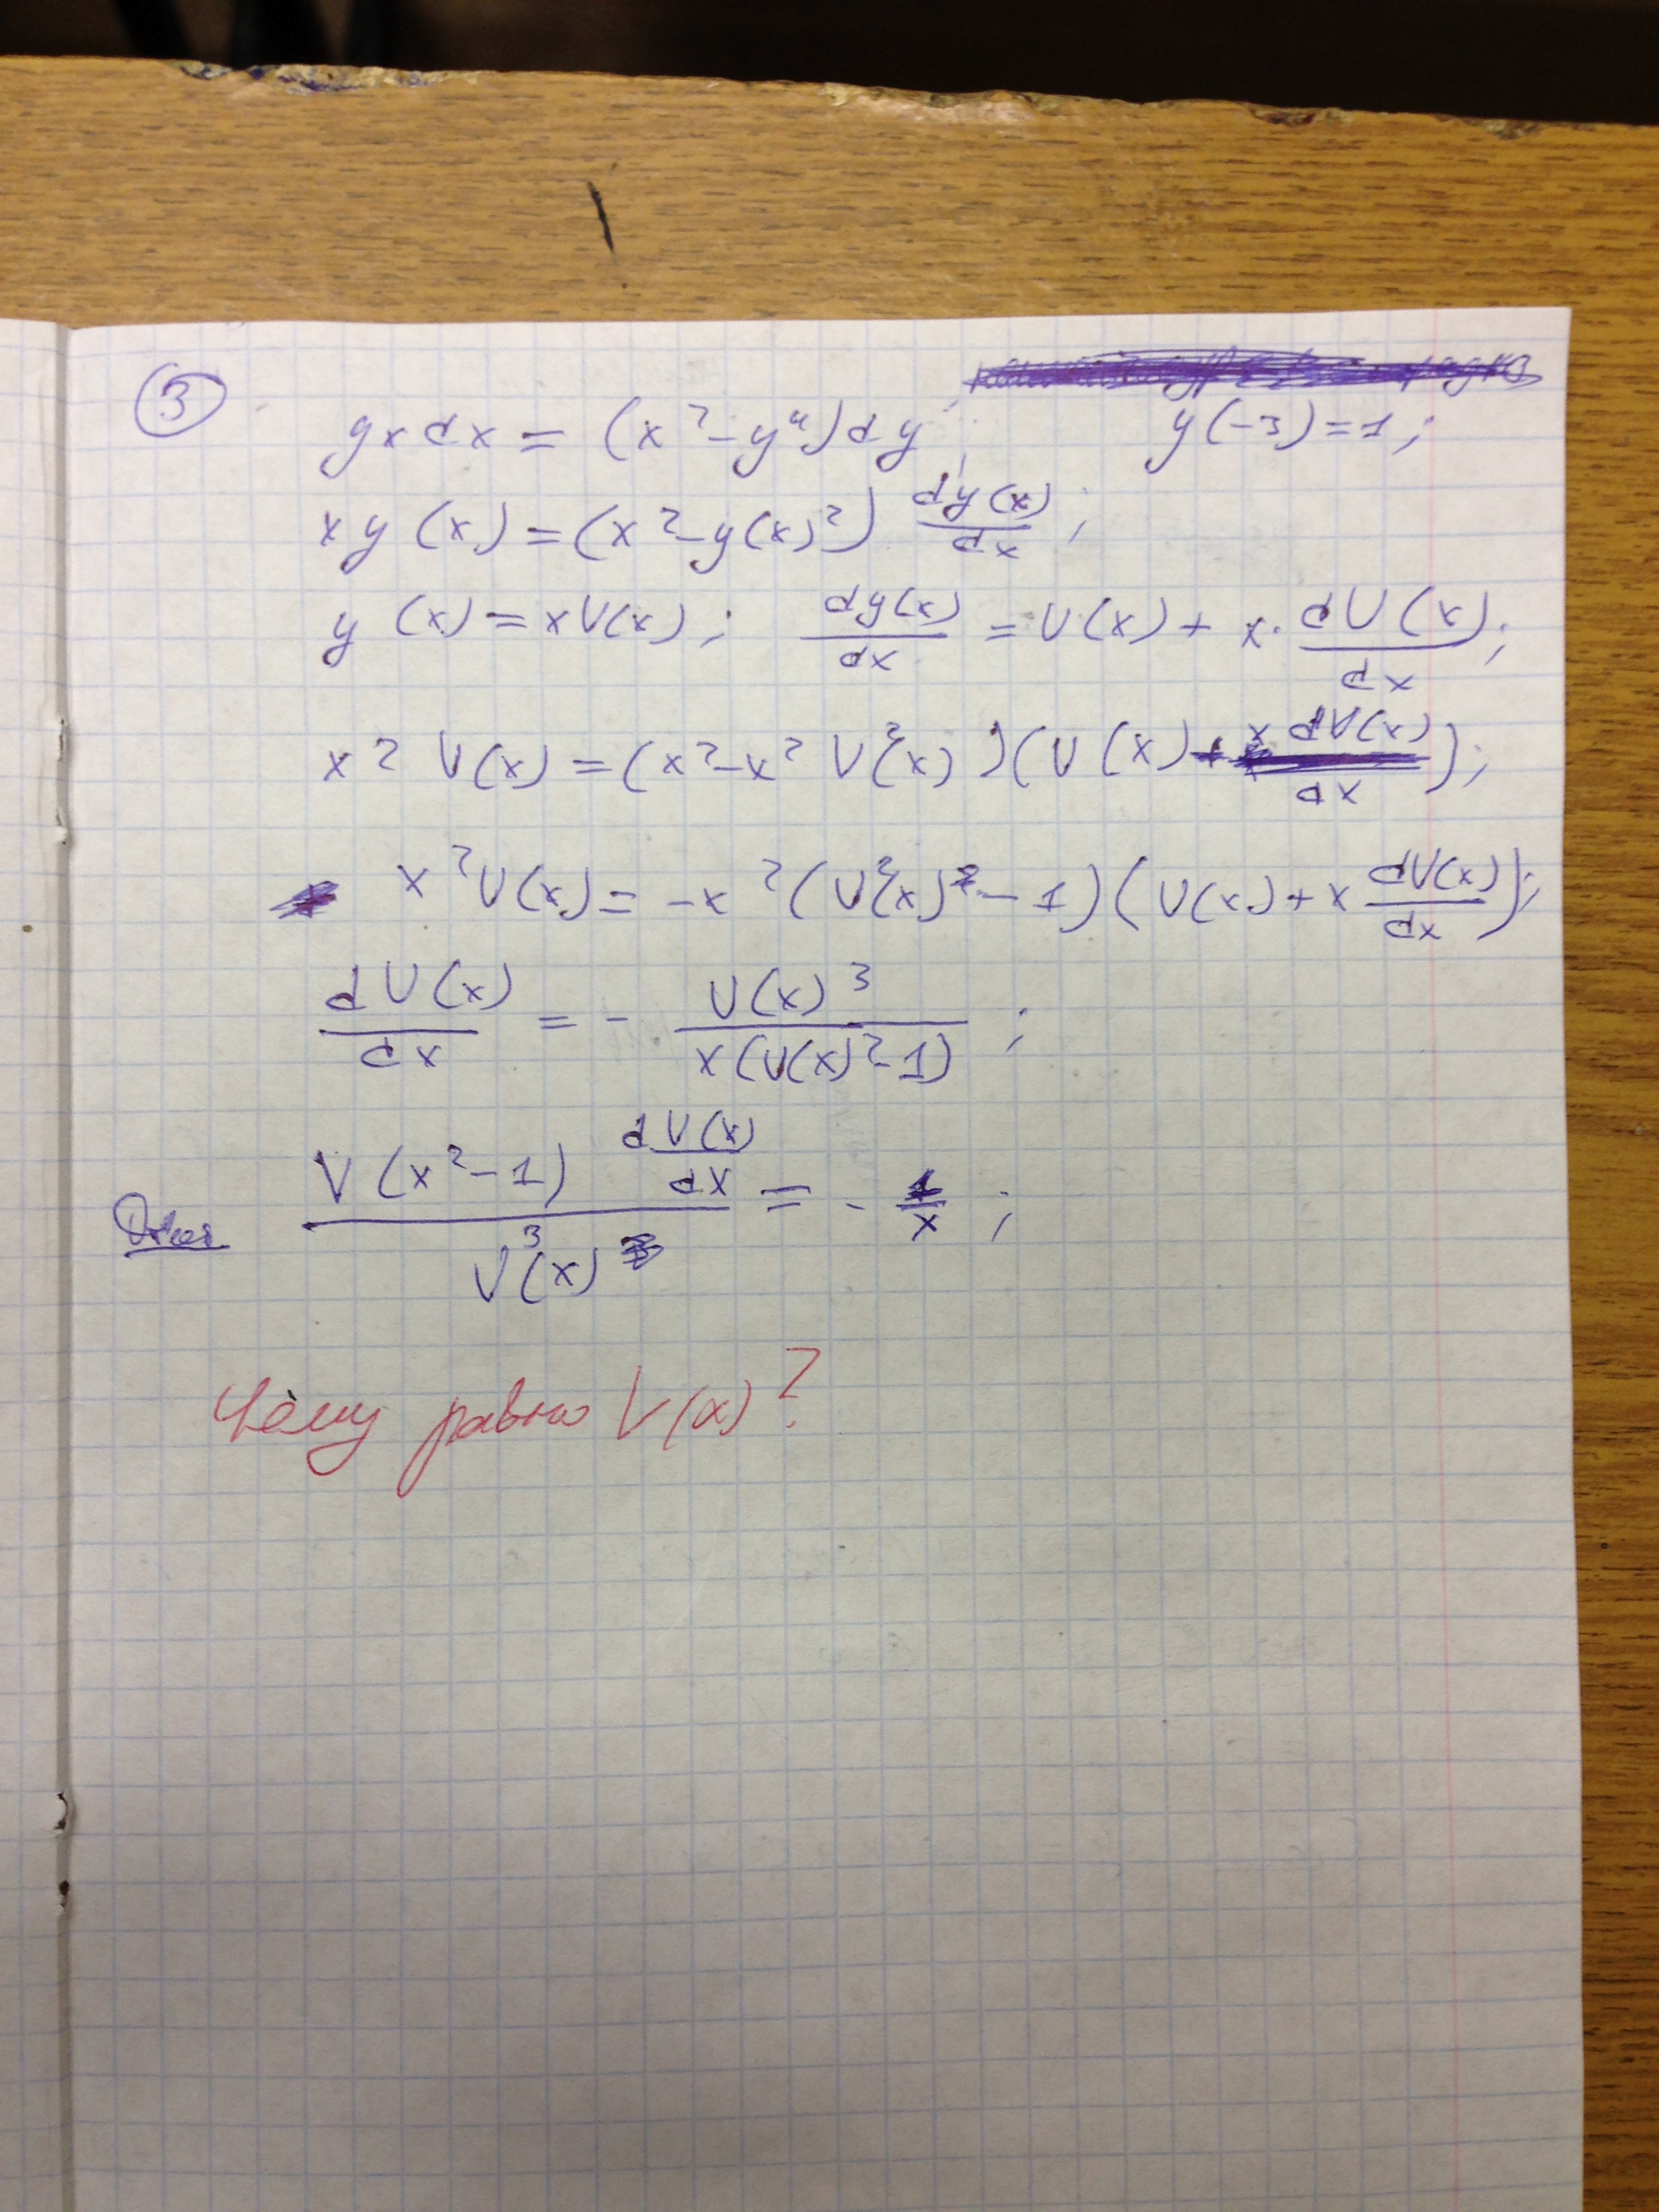 ③
yxdx = (x²-y⁴)dy; y(-3)=1;
xy(x)=(x²-y(x)²) dy(x)/dx;
y(x)=xU(x); dy(x)/dx = U(x)+x·dU(x)/dx;
x²U(x)=(x²-x²U²(x))(U(x)+x dU(x)/dx);
x²U(x)=-x²(U²(x)-1)(U(x)+x dU(x)/dx);
dU(x)/dx = - U(x)³/x(U(x)²-1);
V(x²-1) dV(x)/dx / V³(x) = - 1/x;
Чему равно V(x)?